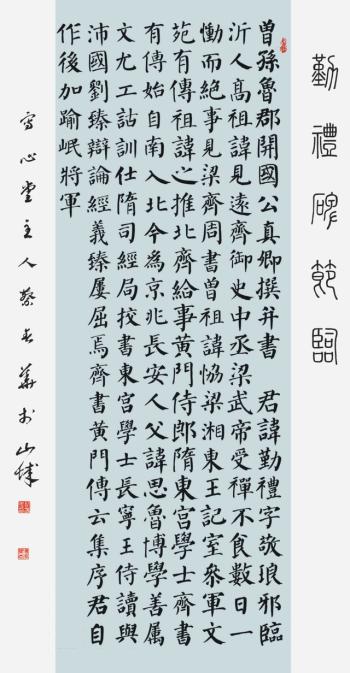 勤禮碑節臨
曾孫魯郡開國公真卿撰并書 君諱勤禮字敬琅邪臨
沂人高祖諱見遠齊御史中丞梁武帝受禪不食數日一
慟而絕事見梁齊周書曾祖諱恊梁湘東王記室參軍文
苑有傳祖諱之推北齊給事黃門侍郎隋東宮學士齊書
有傳始自南入北今為京兆長安人父諱思魯博學善屬
文尤工詁訓仕隋司經局挍書東宮學士長寧王侍讀與
沛國劉臻辯論經義臻屢屈焉齊書黃門傳云集序君自
作後加踰岷將軍
寫心堂主人蔡華於山城